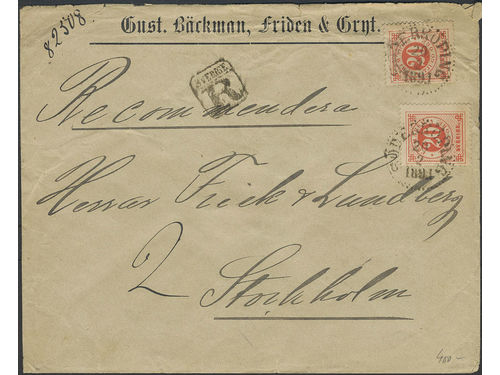 82508
Gust. Bäckman, Friden & Gryt.
SVERIGE
R
20
20
Recommendera
Herrar Fick & Lundberg
2
Stockholm
400 –